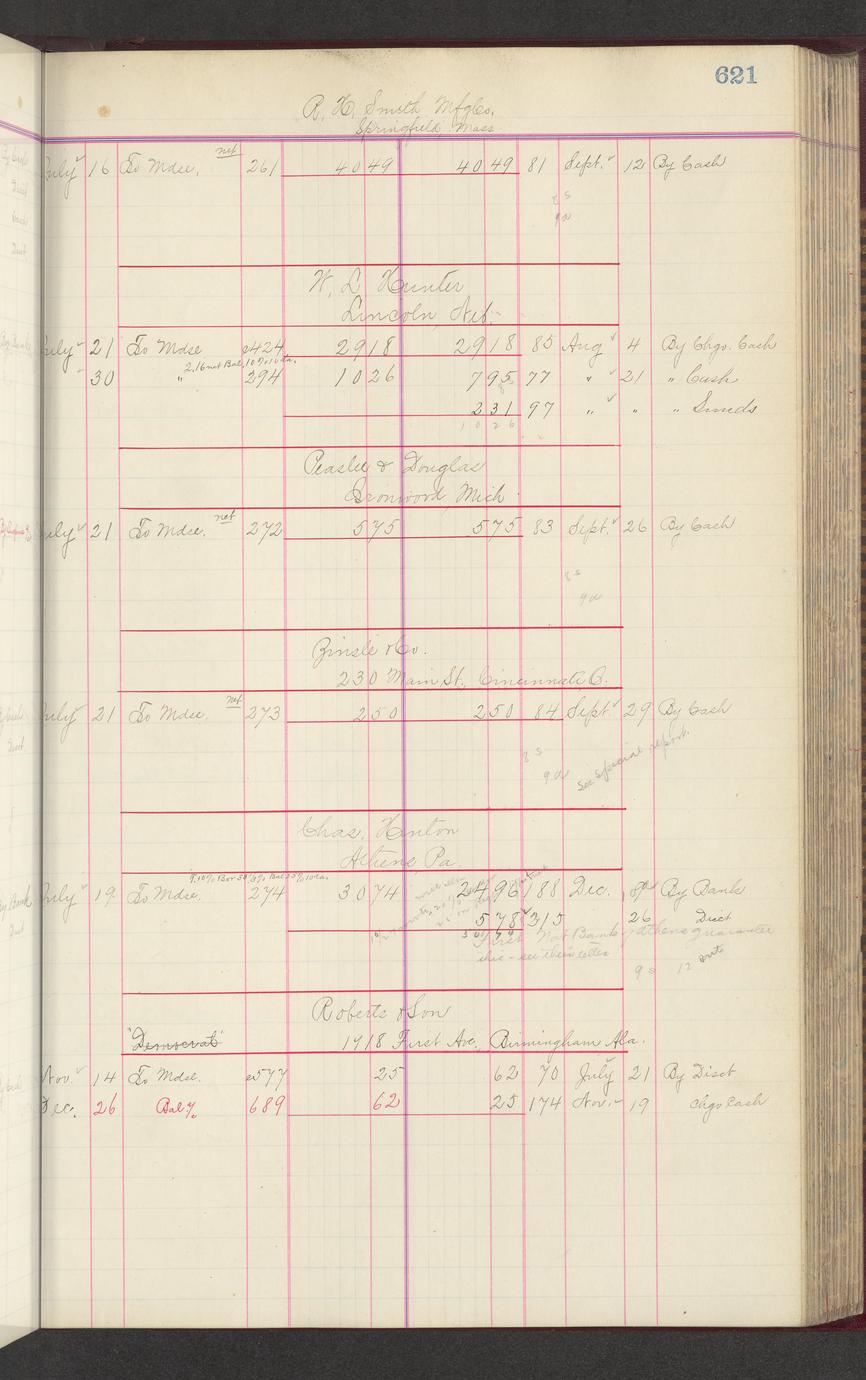 621
R. H. Smith Mfg Co.
Springfield, Mass
July 16 To Mdse. net 261 4049 4049 81 Sept. 12 By Cash
W. L. Hunter
Lincoln, Neb.
July 21 To Mdse e424 2918 2918 85 Aug 4 By Chgo. Cash
30 " 294 1026 795 77 " 21 " Cash
231 97 " " " Sunds
1026
Peaslee & Douglas
Ironwood, Mich.
July 21 To Mdse. net 272 575 575 83 Sept. 26 By Cash
Zinsle & Co.
230 Main St., Cincinnati O.
July 21 To Mdse. net 273 250 250 84 Sept 29 By Cash
See Special report.
Chas. Hinton
Athens Pa.
July 19 To Mdse. 274 3074 2496 188 Dec. 9 By Bank
578 315 26 Disct
First Nat Bank of Athens guarantee
this - see their letter
Roberts & Son
"Democrat" 1918 First Ave., Birmingham Ala.
Nov. 14 To Mdse. e577 25 62 70 July 21 By Disct
Dec. 26 Bal 689 62 25 174 Nov. 19 Chgo Cash